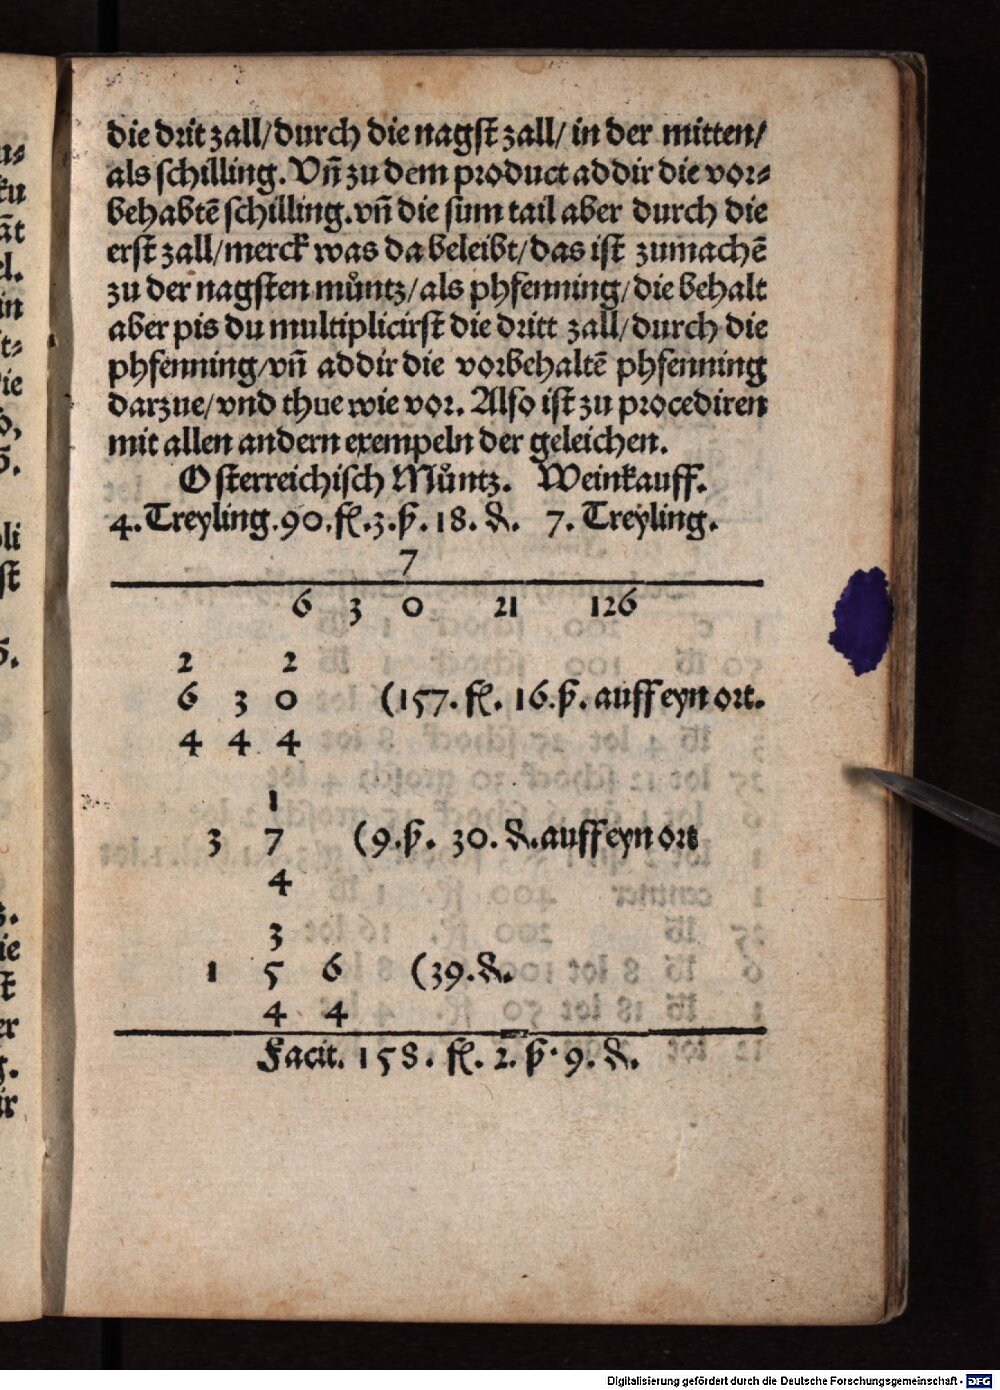 die drit zall/durch die nagst zall/ in der mitten/
als schilling. Vñ zu dem product addir die vor⸗
behabtē schilling.vñ die sum tail aber durch die
erst zall/merck was da beleibt/das ist zumachē
zu der nagsten můntz/als phfenning/die behalt
aber pis du multiplicirst die dritt zall/durch die
phfenning/vñ addir die vorbehaltē phfenning
darzue/vnd thue wie vor. Also ist zu procediren
mit allen andern exempeln der geleichen.
Osterreichisch Můntz. Weinkauff.
4. Treyling.90.fl.3.ß.18.₰. 7. Treyling.
7
6 3 0 21 126
2 2
6 3 0 (157.fl. 16.ß. auff eyn ort.
4 4 4
1
3 7 (9.ß. 30.₰.auff eyn ort
4
3
1 5 6 (39.₰.
4 4
Facit. 158. fl. 2. ß. 9. ₰.
Digitalisierung gefördert durch die Deutsche Forschungsgemeinschaft - DFG